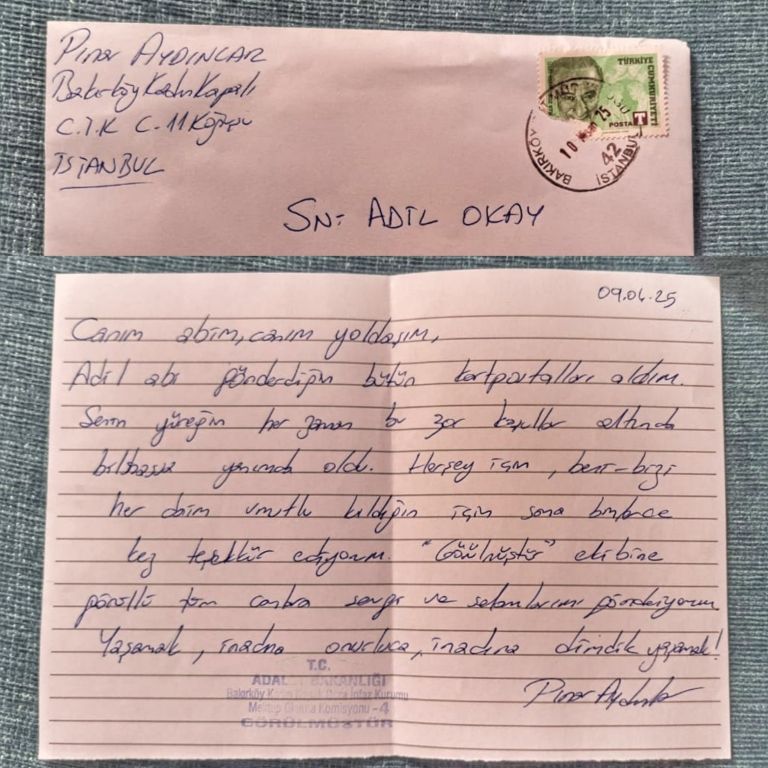 Pınar AYDINLAR
Bakırköy Kadın Kapalı
C.İ.K C.11 Koğuşu
İSTANBUL
TÜRKİYE CUMHURİYETİ
POSTA T
BAKIRKÖY
10 25
42
İSTANBUL
SN. ADİL OKAY
09.04.25
Canım abim, canım yoldaşım,
Adil abi gönderdiğin bütün kartpostalları aldım.
Senin yüreğin her zaman bu zor koşullar altında
bilhassa yanımda oldu. Herşey için, beni-bizi
her daim umutlu kıldığın için sana binlerce
kez teşekkür ediyorum. "Görülmüştür" ekibine
gönüllü tüm canlara sevgi ve selamlarımı gönderiyorum
Yaşamak, inadına onurluca, inadına dimdik yaşamak!
Pınar Aydınlar
T.C.
ADALET BAKANLIĞI
Bakırköy Kadın Kapalı Ceza İnfaz Kurumu
Mektup Okuma Komisyonu -4
GÖRÜLMÜŞTÜR